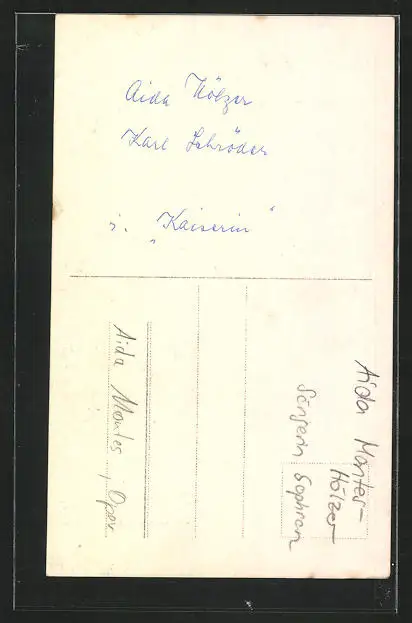 Aida Hölzer
Karl Schröder
i. "Kaiserin"
Aida Montes-
Hölzer
Sängerin Sophran
Aida Montes, Oper